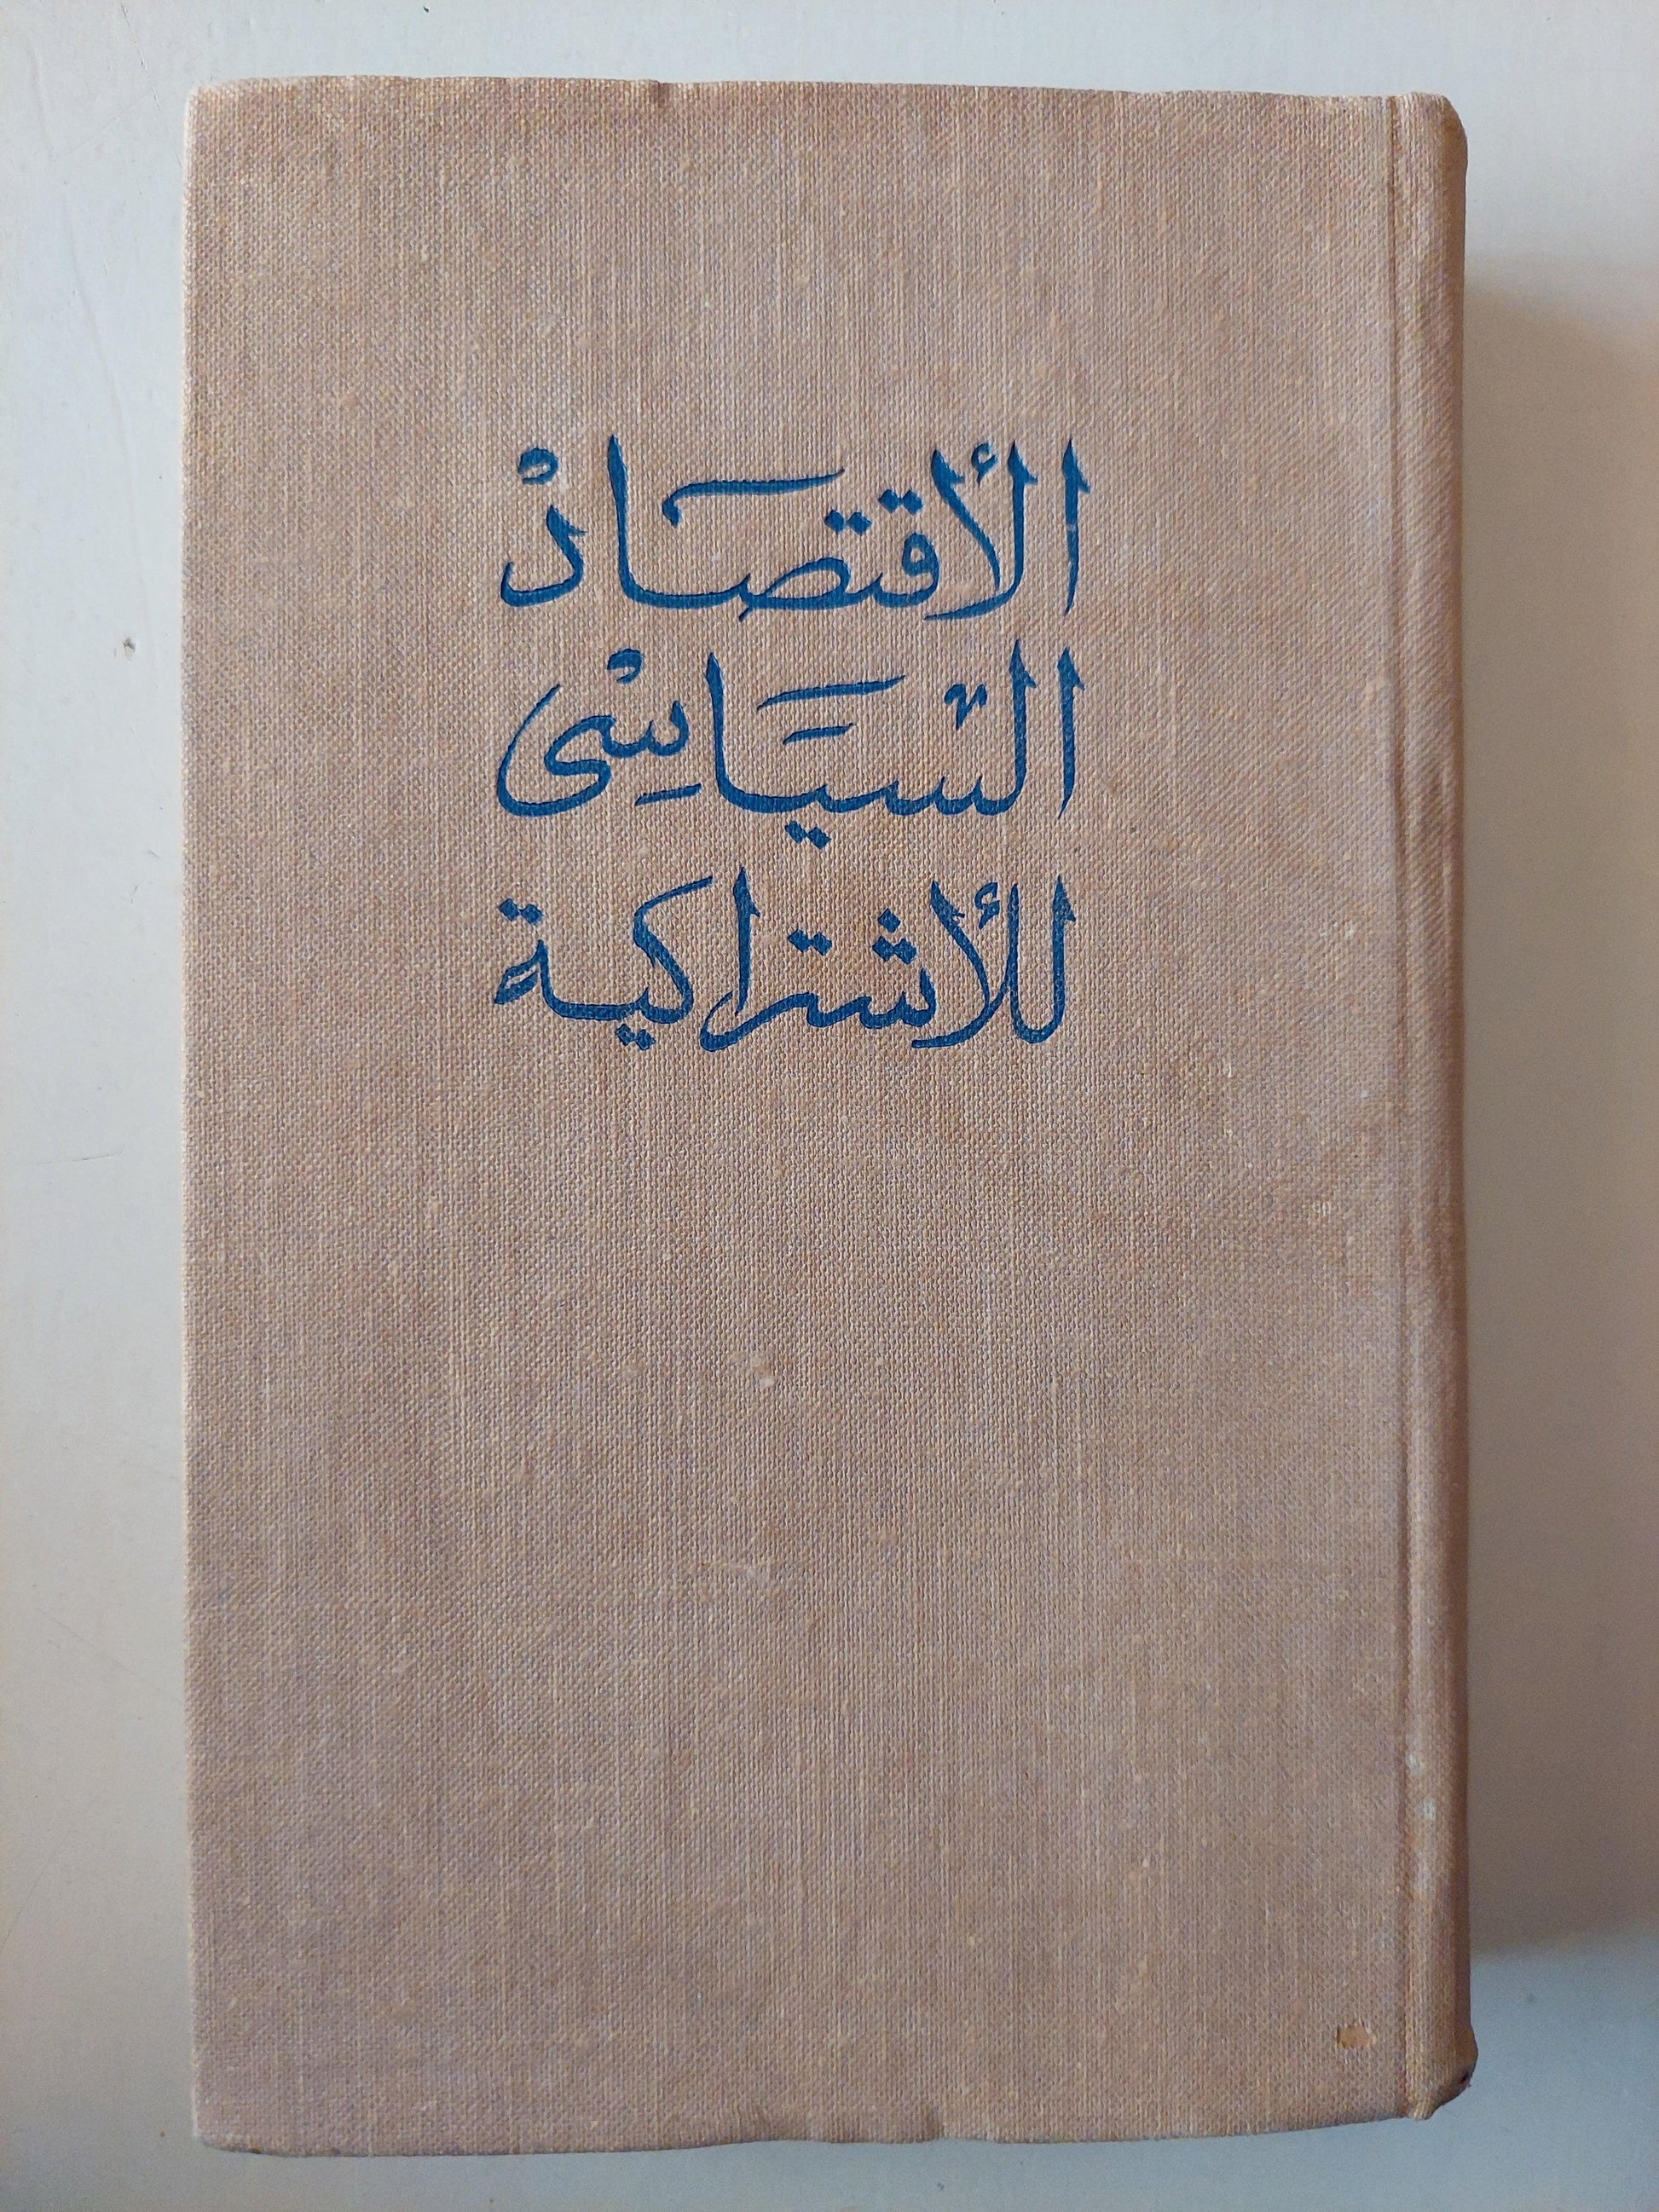 الأقتصادْ
السّيَاسِى
للأشتراكية